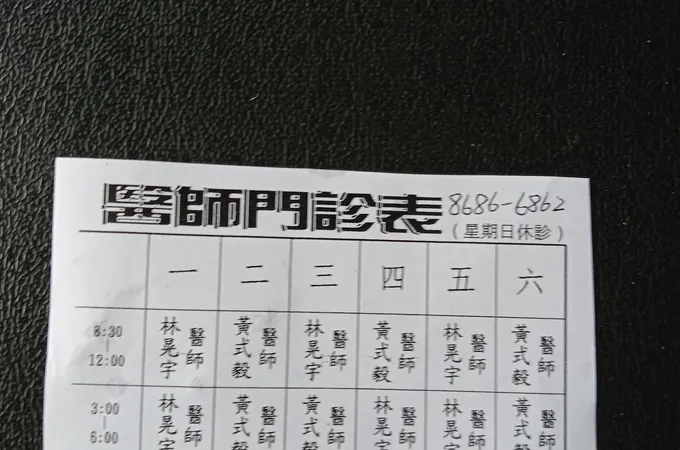 醫師門診表 8686-6862
(星期日休診)
一 二 三 四 五 六
8:30|12:00 林晃宇醫師 黃式毅醫師 林晃宇醫師 黃式毅醫師 林晃宇醫師 黃式毅醫師
3:00|6:00 林晃宇醫師 黃式毅醫師 黃式毅醫師 林晃宇醫師 林晃宇醫師 黃式毅醫師